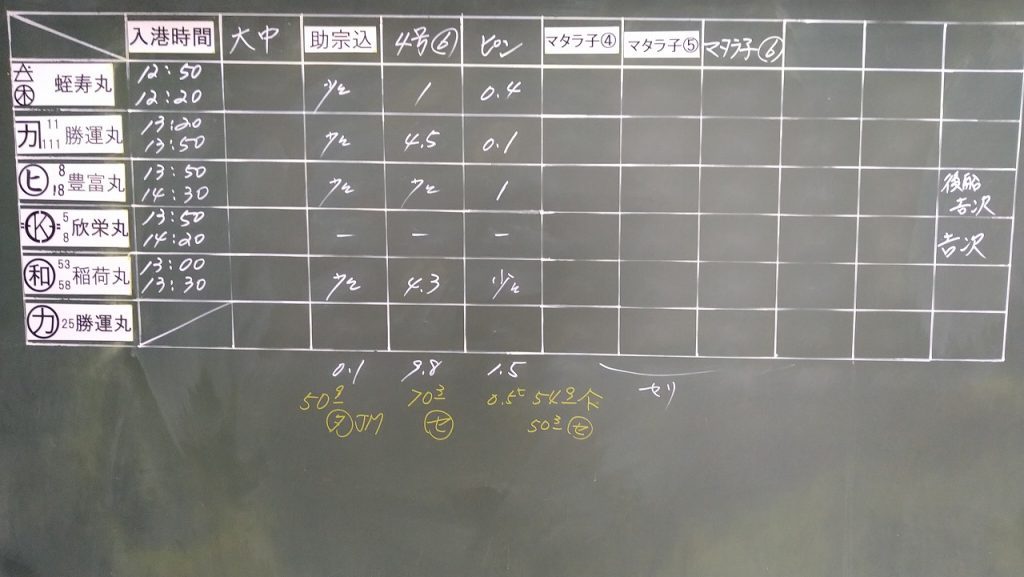 入港時間 大中 助宗込 4号⑥ ピン マタラ子④ マタラ子⑤ マタラ子⑥
木 蛭寿丸 12:50 12:20 少々 1 0.4
カ 11 111 勝運丸 13:20 13:50 少々 4.5 0.1
ヒ 8 18 豊富丸 13:50 14:30 少々 少々 1 後船 吉次
K 5 8 欣栄丸 13:50 14:20 － － － 吉次
和 53 58 稲荷丸 13:00 13:30 少々 4.3 少々
カ 25 勝運丸
0.1 9.8 1.5 セリ
50 JM 70 セ 0.55 54
50 セ